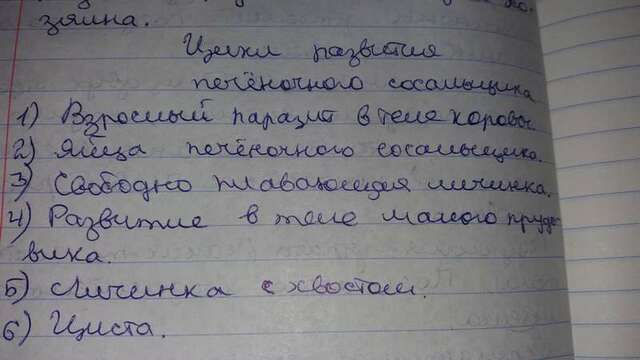 зяина.
Цикл развития
печёночного сосальщика
1) Взрослый паразит в теле коровы.
2) Яйца печёночного сосальщика.
3) Свободно плавающая личинка.
4) Развитие в теле малого прудо-
вика.
5) Личинка с хвостом.
6) Циста.